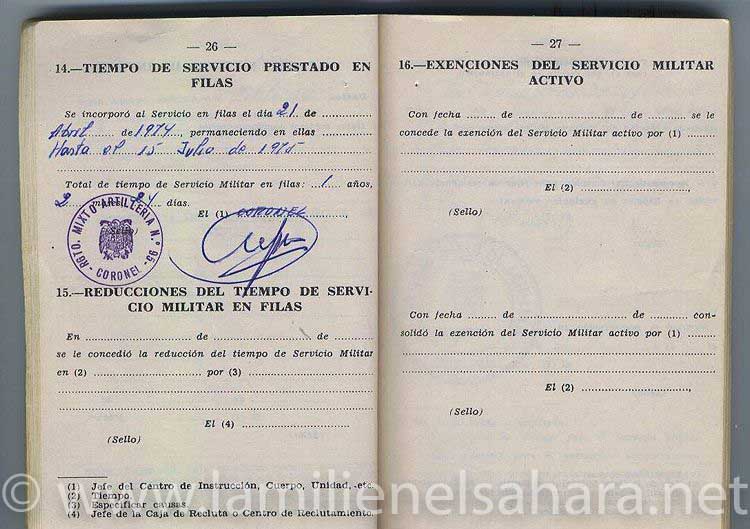 — 26 —
14.—TIEMPO DE SERVICIO PRESTADO EN
FILAS
Se incorporó al Servicio en filas el día 21 de ............
Abril de 1974, permaneciendo en ellas ............
Hasta el 15 Julio de 1975
Total de tiempo de Servicio Militar en filas: 1 años,
2 meses 24 días.
El (1) CORONEL,
(Sello)
RGTO. MIXTO ARTILLERIA N.º 93 - CORONEL -
15.—REDUCCIONES DEL TIEMPO DE SERVI-
CIO MILITAR EN FILAS
En ............ de ............ de ............
se le concedió la reducción del tiempo de Servicio Militar
en (2) ............ por (3) ............
El (4) ............
(Sello)
(1) Jefe del Centro de Instrucción, Cuerpo, Unidad, etc.
(2) Tiempo.
(3) Especificar causas.
(4) Jefe de la Caja de Recluta o Centro de Reclutamiento.
— 27 —
16.—EXENCIONES DEL SERVICIO MILITAR
ACTIVO
Con fecha ........ de ............ de ........ se le
concede la exención del Servicio Militar activo por (1) ........
El (2) ............,
(Sello)
Con fecha ........ de ............ de ........ con-
solidó la exención del Servicio Militar activo por (1) ........
El (2) ............,
(Sello)
© www.lamilienelsahara.net